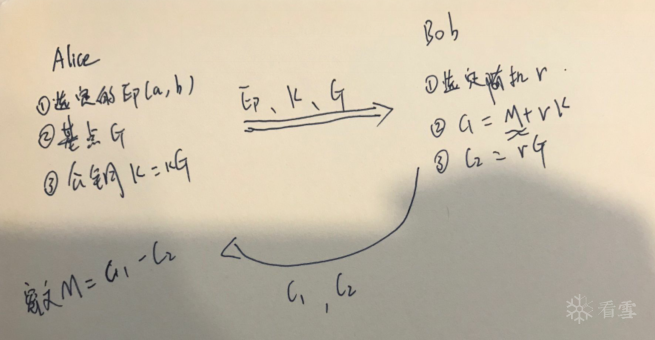 Alice
①选定的Ep(a,b)
②基点G
③公钥K=kG
Ep、K、G
Bob
①选定随机r.
②C1=M+rK
③C2=rG
C1,C2
密文M=C1-C2
看雪